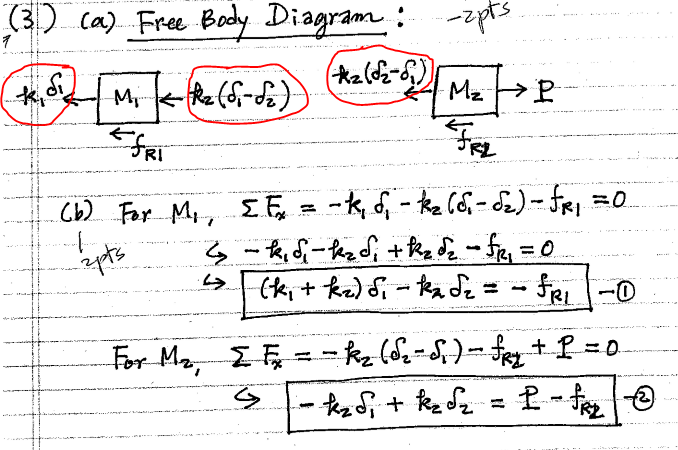 (3) (a) Free Body Diagram : -2pts
k₁δ₁ ← M₁ ← k₂(δ₁-δ₂) k₂(δ₂-δ₁) ← M₂ → P
← fR1 ← fR2
(b) For M₁, ΣFx = -k₁δ₁ - k₂(δ₁-δ₂) - fR1 = 0
2pts ↳ -k₁δ₁ - k₂δ₁ + k₂δ₂ - fR1 = 0
↳ (k₁ + k₂)δ₁ - k₂δ₂ = - fR1 -①
For M₂, ΣFx = -k₂(δ₂-δ₁) - fR2 + P = 0
↳ -k₂δ₁ + k₂δ₂ = P - fR2 -②